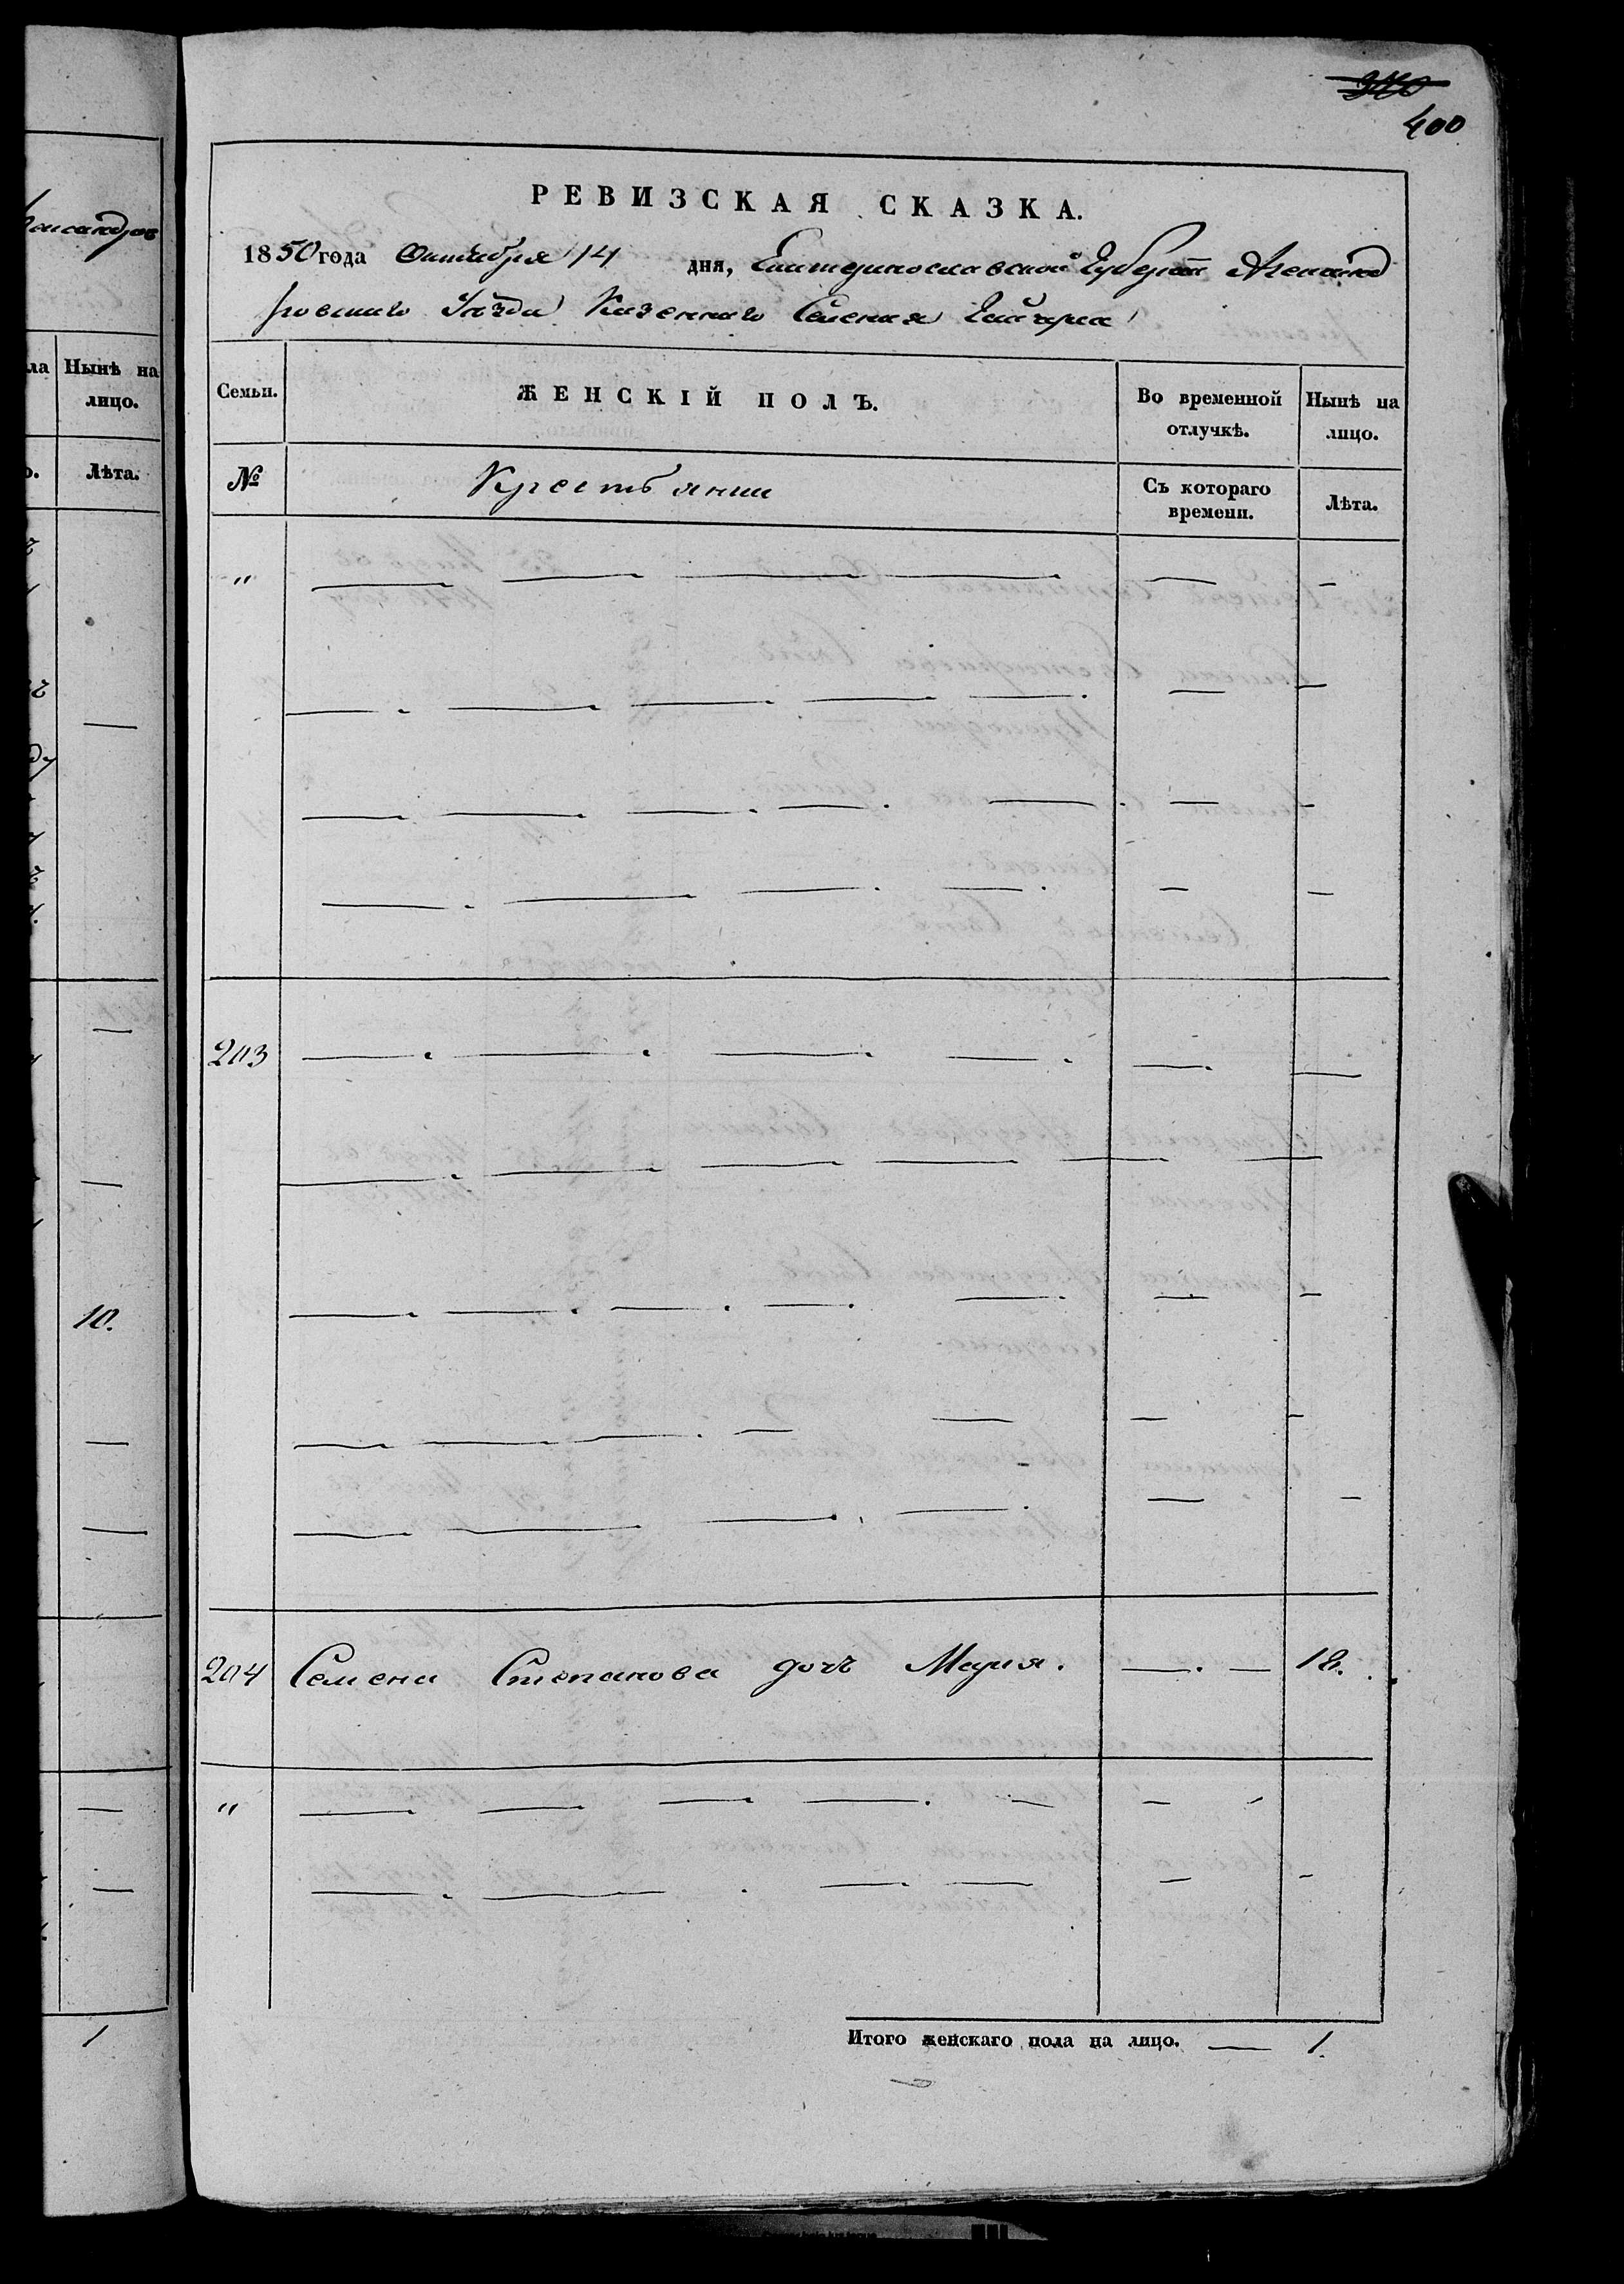 400
РЕВИЗСКАЯ СКАЗКА.
1850 года Октября 14 дня, Екатеринославской Губернии Александ
ровскаго Уезда Казеннаго Селения Гайчула
Семьи. ЖЕНСКІЙ ПОЛЪ. Во временной отлучкѣ. Нынѣ на лицо.
№ Крестьянии Съ котораго времени. Лѣта.
"
203
204 Семена Степанова дочь Мария. — . — 18.
"
Итого женскаго пола на лицо. — 1.
ла Нынѣ на
лицо.
Лѣта.
10.
1